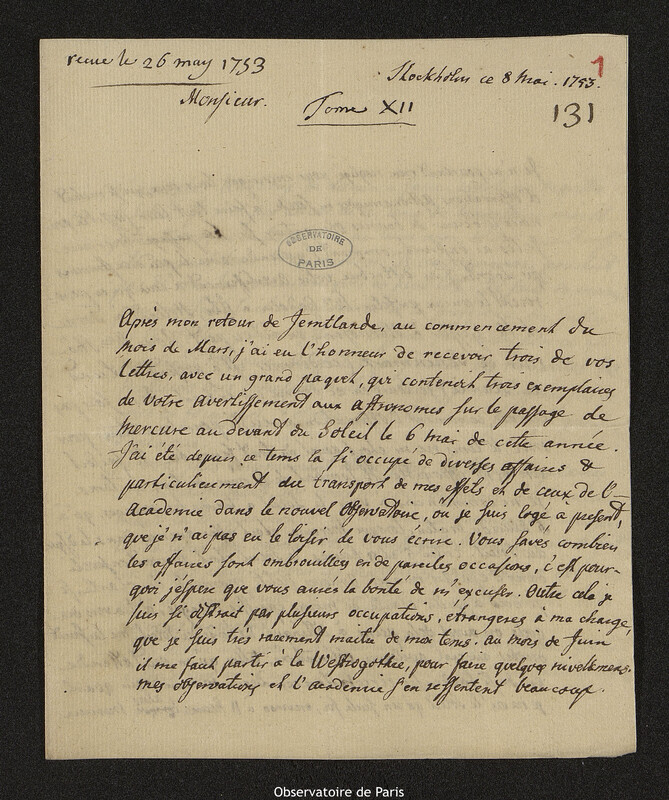 recue le 26 may 1753
Stockholm ce 8 Mai. 1753.
1
Monsieur.
Tome XII
131
OBSERVATOIRE
DE
PARIS
Après mon retour de Jemtlande, au commencement du
mois de Mars, j'ai eu l'honneur de recevoir trois de vos
lettres, avec un grand paquet, qui contenoit trois exemplaires
de votre avertissement aux astronomes sur le passage de
mercure au devant du Soleil le 6 mai de cette année.
J'ai été depuis ce tems la si occupé de diverses affaires &
particulierement du transport de mes effets et de ceux de l'-
Academie dans le nouvel Observatoire, ou je suis logé à present,
que je n'ai pas eu le loisir de vous écrire. Vous savés combien
les affaires sont embrouillées en de pareilles occasions, c'est pour-
quoi j'espere que vous aurés la bonté de m'excuser. Outre cela je
suis si distrait par plusieurs occupations, étrangeres à ma charge,
que je suis très rarement maitre de mon tems. au mois de Juin
il me faut partir à la Westrogothie, pour faire quelques nivellemens.
mes observations et l'academie s'en ressentent beaucoup.
Observatoire de Paris